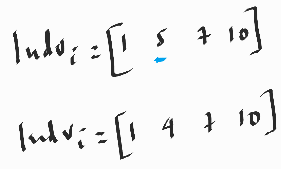 Indv i = [1 5 7 10]
Indv i = [1 4 7 10]